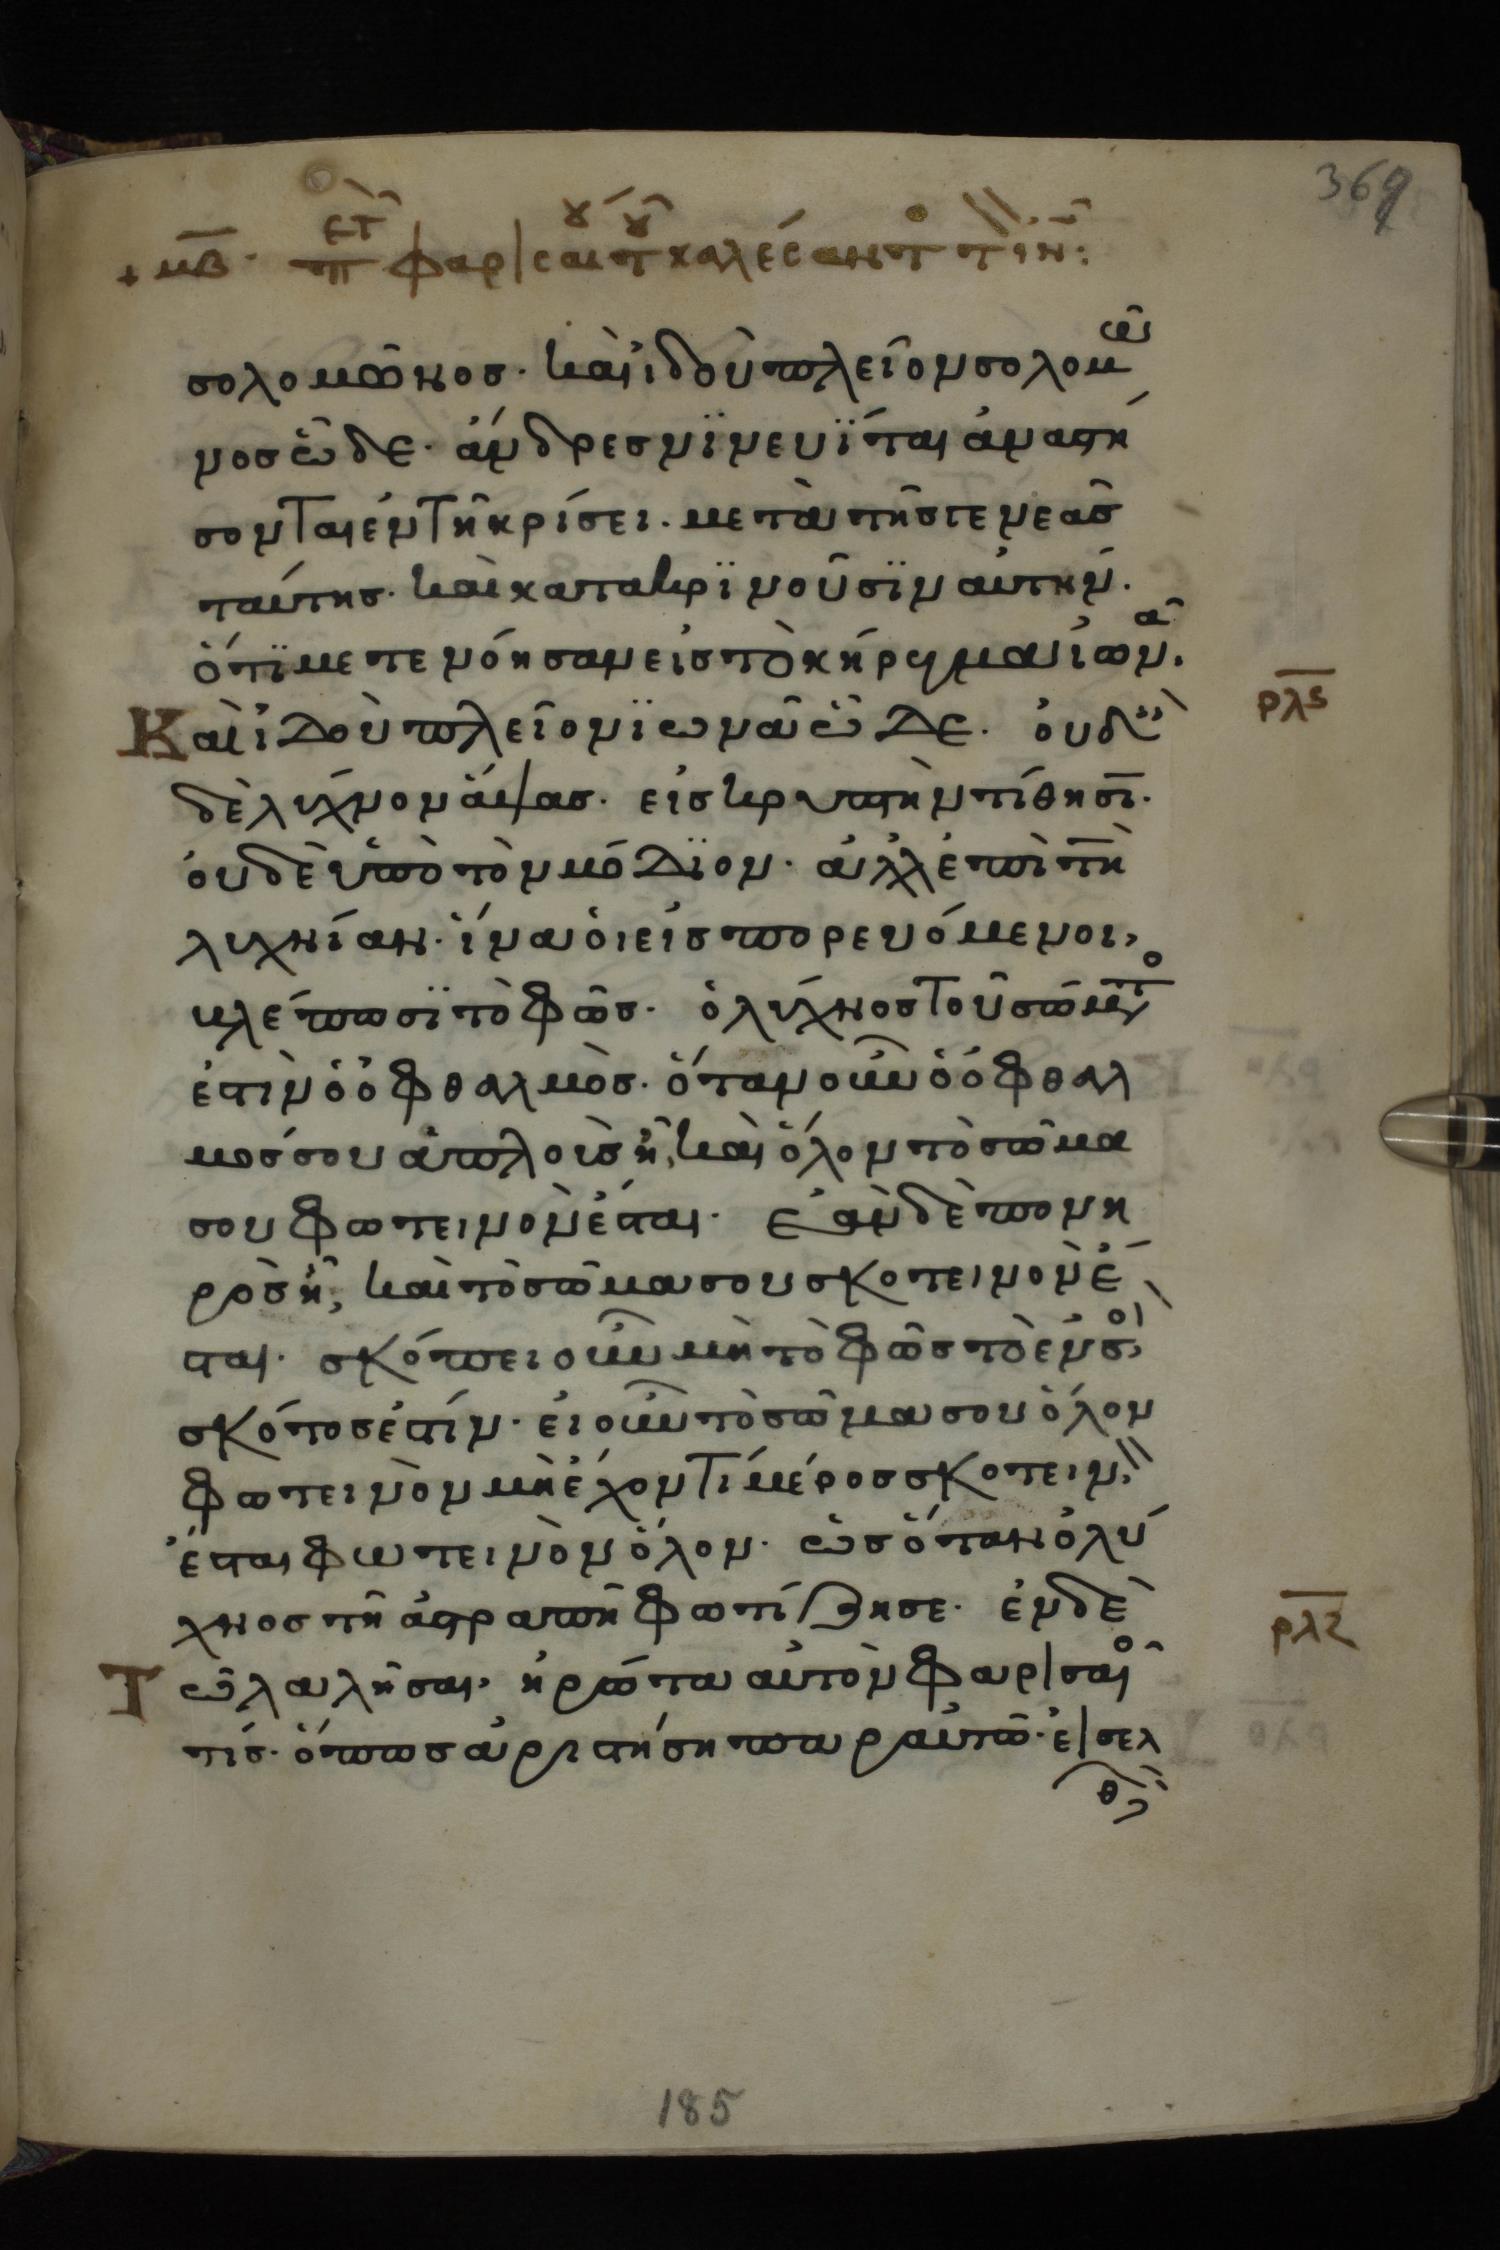 369
+ μβ· πετ φαρισαίου του καλέσαντο τ ιν:
σολομῶνος· καὶ ἰδοὺ πλεῖον σολομῶ
νος ὧδε· ἄνδρες νϊνευῖται ἀναστή
σονται ἐν τῆ κρίσει· μετὰ τῆς γενεᾶς
ταύτης· καὶ κατακρϊνοῦσϊν αὐτήν·
ὅτϊ μετενόησαν εἰς τὸ κήρυγμα ἰωνᾶ·
Καὶ ἰδοὺ πλεῖον ϊωνᾶ ὧδε· οὐδεὶς
δὲ λύχνον ἅψας· εἰς κρυπτὴν τίθησϊ·
οὐδὲ ὑπὸ τὸν μόδϊον· ἀλλ' ἐπὶ τὴ
λυχνίαν· ἵνα οἱ εἰσπορευόμενοι,
βλέπωσϊ τὸ φῶς· ὁ λύχνος τοῦ σώματο
ἐστὶν ὁ ὀφθαλμός· ὅταν οὖν ὁ ὀφθαλ
μός σου ἁπλοῦς ῆ, καὶ ὅλον τὸ σῶμα
σου φωτεινὸν ἔσται· ἐὰν δὲ πονη
ρὸς ῆ, καὶ τὸ σῶμα σου σκοτεινὸν ἔ
σται· σκόπει οὖν μὴ τὸ φῶς τὸ ἐν σοὶ
σκότος ἐστίν· εἰ οὖν τὸ σῶμα σου ὅλον
φωτεινὸν μὴ ἔχον τί μέρος σκοτεινὸν
ἔσται φωτεινὸν ὅλον· ὡς ὅταν ὁ λύ
χνος τῆ ἀστραπῆ φωτίζη σε· ἐν δὲ
Τῶ λαλῆσαι, ἠρώτα αὐτὸν φαρισαῖο
τίς· ὅπως ἀριστήση παρ' αὐτῶ· εἰσελ
θὼν
ρλϛ
ρλζ
185